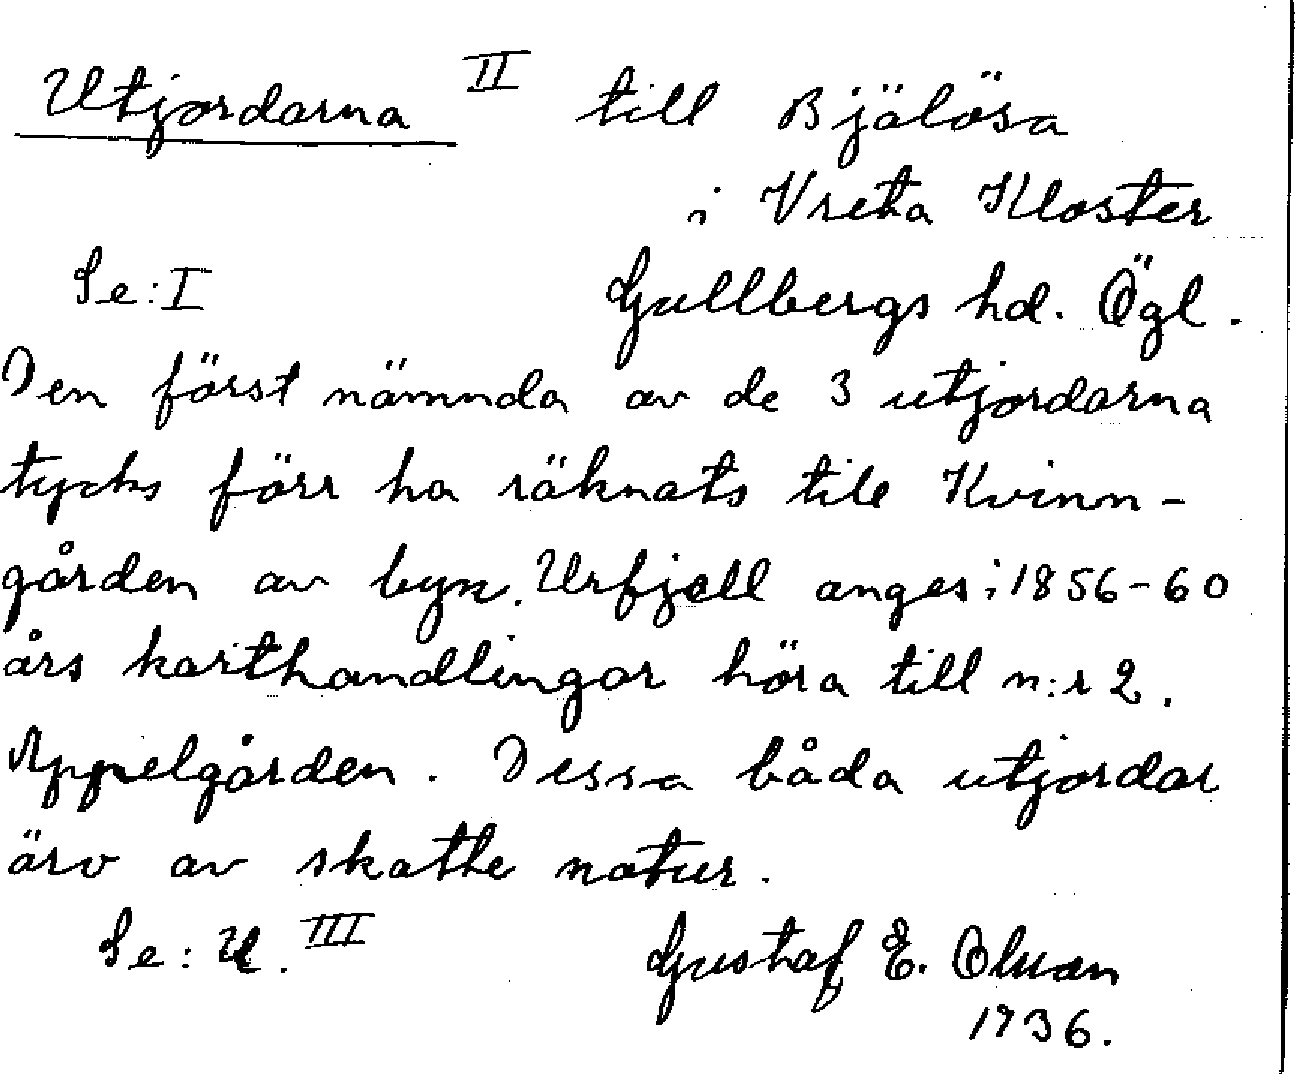 Utjordarna II till Bjälösa
i Vreta Kloster
Se: I Gullbergs hd. Ögl.
Den först nämnda av de 3 utjordarna
tycks förr ha räknats till Kvinn-
gården av byn. Urfjäll anges i 1856-60
års karthandlingar höra till n:r 2.
Äppelgården. Dessa båda utjordar
äro av skatte natur.
Se: U. III Gustaf E. Olman
1936.